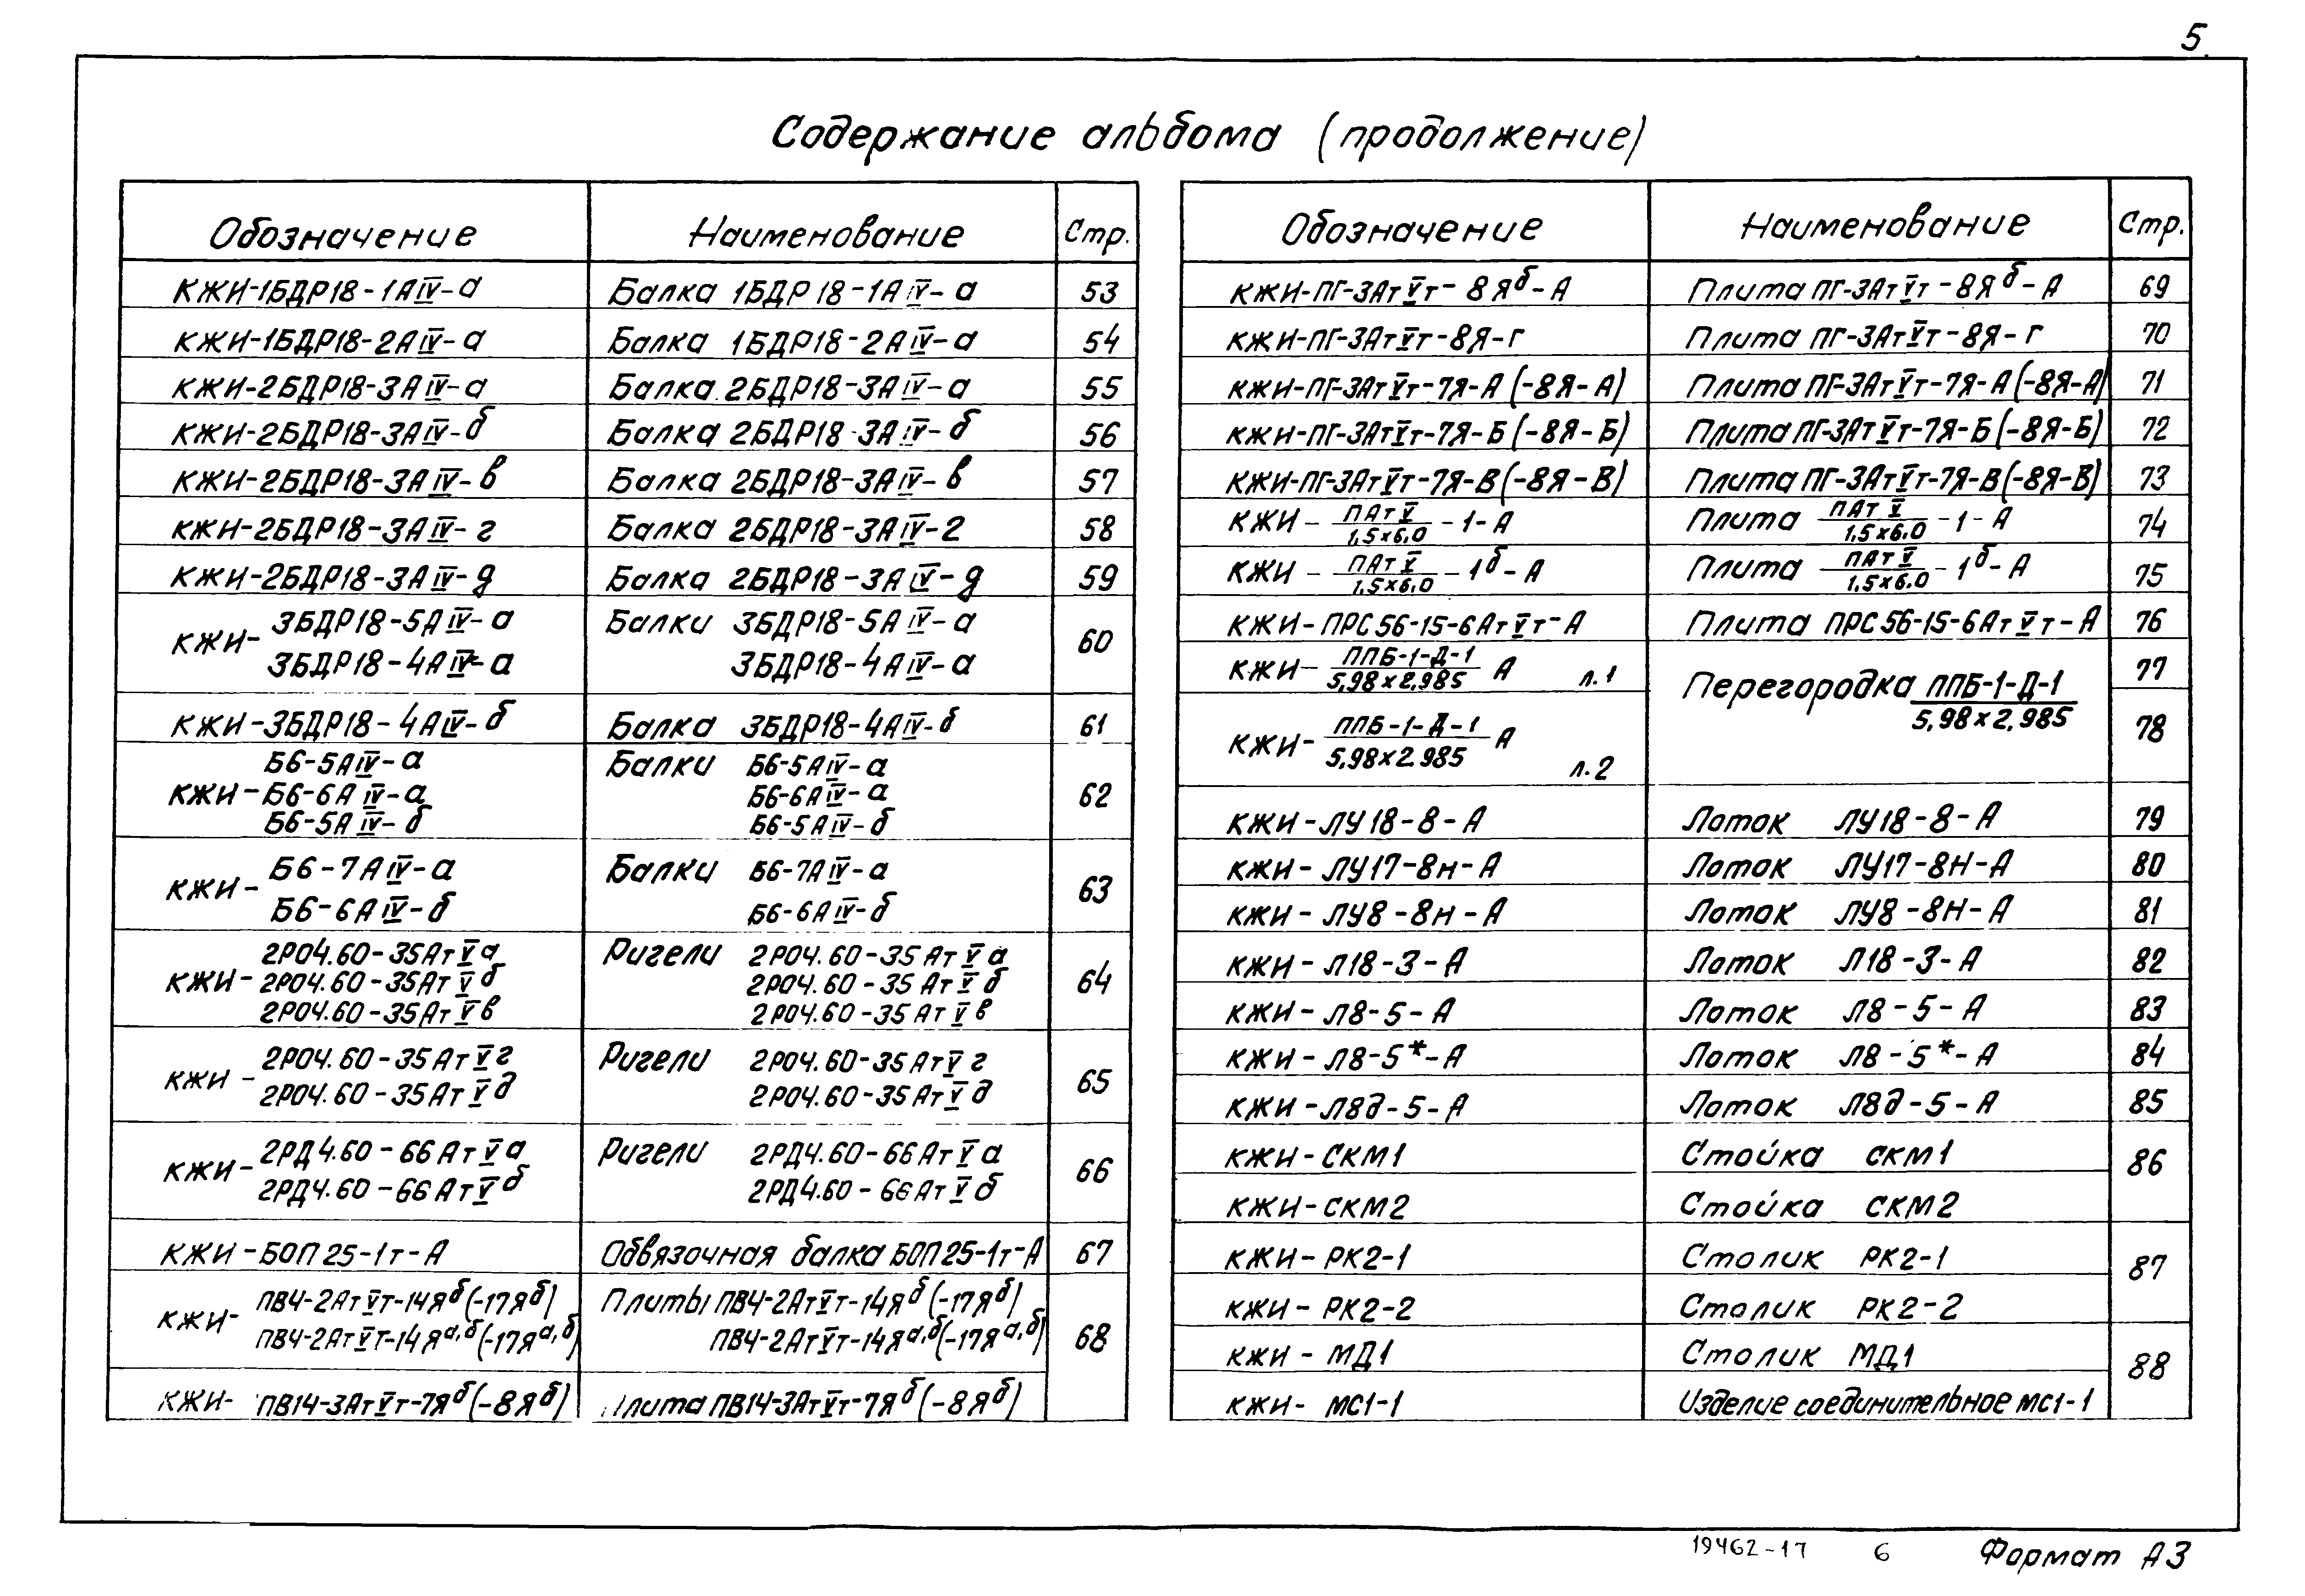 5
Содержание альбома (продолжение)
Обозначение Наименование Стр.
КЖИ-1БДР18-1АIV-а Балка 1БДР18-1АIV-а 53
КЖИ-1БДР18-2АIV-а Балка 1БДР18-2АIV-а 54
КЖИ-2БДР18-3АIV-а Балка 2БДР18-3АIV-а 55
КЖИ-2БДР18-3АIV-б Балка 2БДР18-3АIV-б 56
КЖИ-2БДР18-3АIV-в Балка 2БДР18-3АIV-в 57
КЖИ-2БДР18-3АIV-г Балка 2БДР18-3АIV-г 58
КЖИ-2БДР18-3АIV-д Балка 2БДР18-3АIV-д 59
КЖИ- 3БДР18-5АIV-а Балки 3БДР18-5АIV-а 60
3БДР18-4АIV-а 3БДР18-4АIV-а
КЖИ-3БДР18-4АIV-б Балка 3БДР18-4АIV-б 61
Б6-5АIV-а Балки Б6-5АIV-а
КЖИ-Б6-6АIV-а Б6-6АIV-а 62
Б6-5АIV-б Б6-5АIV-б
КЖИ- Б6-7АIV-а Балки Б6-7АIV-а 63
Б6-6АIV-б Б6-6АIV-б
2РО4.60-35АтVа Ригели 2РО4.60-35АтVа
КЖИ-2РО4.60-35АтVб 2РО4.60-35АтVб 64
2РО4.60-35АтVв 2РО4.60-35АтVв
КЖИ- 2РО4.60-35АтVг Ригели 2РО4.60-35АтVг 65
2РО4.60-35АтVд 2РО4.60-35АтVд
КЖИ- 2РД4.60-66АтVа Ригели 2РД4.60-66АтVа 66
2РД4.60-66АтVб 2РД4.60-66АтVб
КЖИ-БОП25-1т-А Обвязочная балка БОП25-1т-А 67
КЖИ- ПВ4-2АтVт-14Яб(-17Яб) Плиты ПВ4-2АтVт-14Яб(-17Яб) 68
ПВ4-2АтVт-14Яа,б(-17Яа,б) ПВ4-2АтVт-14Яа,б(-17Яа,б)
КЖИ- ПВ14-3АтVт-7Яб(-8Яб) Плита ПВ14-3АтVт-7Яб(-8Яб)
Обозначение Наименование Стр.
КЖИ-ПГ-3АтVт-8Яб-А Плита ПГ-3АтVт-8Яб-А 69
КЖИ-ПГ-3АтVт-8Я-г Плита ПГ-3АтVт-8Я-г 70
КЖИ-ПГ-3АтVт-7Я-А(-8Я-А) Плита ПГ-3АтVт-7Я-А(-8Я-А) 71
КЖИ-ПГ-3АтVт-7Я-Б(-8Я-Б) Плита ПГ-3АтVт-7Я-Б(-8Я-Б) 72
КЖИ-ПГ-3АтVт-7Я-В(-8Я-В) Плита ПГ-3АтVт-7Я-В(-8Я-В) 73
КЖИ- ПАтV/1,5х6,0 -1-А Плита ПАтV/1,5х6.0 -1-А 74
КЖИ- ПАтV/1,5х6.0 -1б-А Плита ПАтV/1,5х6.0 -1б-А 75
КЖИ-ПРС56-15-6АтVт-А Плита ПРС56-15-6АтVт-А 76
КЖИ- ППБ-1-Д-1/5,98х2,985 А л.1 Перегородка ППБ-1-Д-1/5,98х2,985 77
КЖИ- ППБ-1-Д-1/5,98х2.985 А л.2 78
КЖИ-ЛУ18-8-А Лоток ЛУ18-8-А 79
КЖИ-ЛУ17-8н-А Лоток ЛУ17-8Н-А 80
КЖИ-ЛУ8-8н-А Лоток ЛУ8-8Н-А 81
КЖИ-Л18-3-А Лоток Л18-3-А 82
КЖИ-Л8-5-А Лоток Л8-5-А 83
КЖИ-Л8-5*-А Лоток Л8-5*-А 84
КЖИ-Л8д-5-А Лоток Л8д-5-А 85
КЖИ-СКМ1 Стойка СКМ1 86
КЖИ-СКМ2 Стойка СКМ2
КЖИ-РК2-1 Столик РК2-1 87
КЖИ-РК2-2 Столик РК2-2
КЖИ-МД1 Столик МД1 88
КЖИ- МС1-1 Изделие соединительное МС1-1
19462-17 6 Формат А3